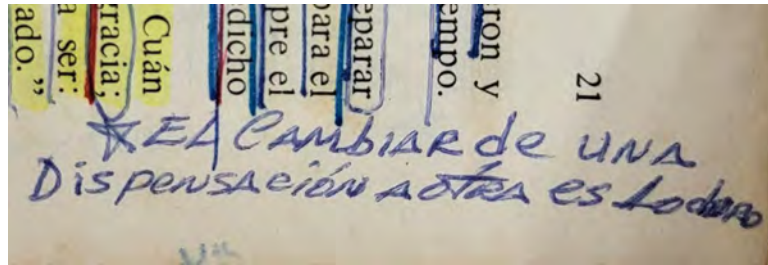 21
ron y
empo.
eparar
para el
pre el
dicho
Cuán
racia;
a ser:
ado.”
*EL CAMBIAR de UNA
DispensAción A otRA es